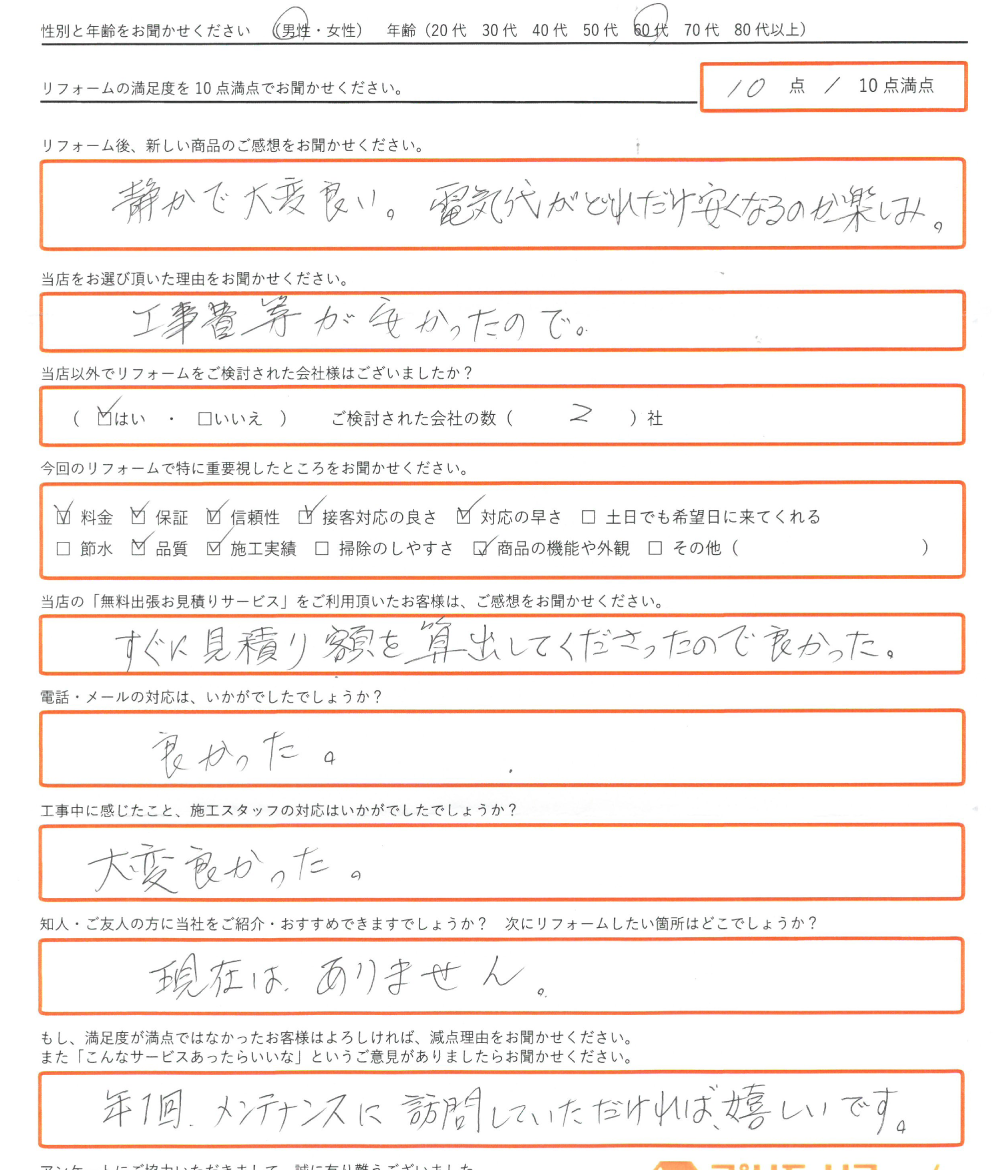 性別と年齢をお聞かせください (男性・女性) 年齢(20代 30代 40代 50代 60代 70代 80代以上)
リフォームの満足度を10点満点でお聞かせください。 10 点 / 10点満点
リフォーム後、新しい商品のご感想をお聞かせください。
静かで大変良い。電気代がどれだけ安くなるのか楽しみ。
当店をお選び頂いた理由をお聞かせください。
工事費等が安かったので。
当店以外でリフォームをご検討された会社様はございましたか?
( ☑はい ・ □いいえ ) ご検討された会社の数( 2 )社
今回のリフォームで特に重要視したところをお聞かせください。
☑ 料金 ☑ 保証 ☑ 信頼性 ☑ 接客対応の良さ ☑ 対応の早さ □ 土日でも希望日に来てくれる
□ 節水 ☑ 品質 ☑ 施工実績 □ 掃除のしやすさ ☑ 商品の機能や外観 □ その他( )
当店の「無料出張お見積りサービス」をご利用頂いたお客様は、ご感想をお聞かせください。
すぐに見積り額を算出してくださったので良かった。
電話・メールの対応は、いかがでしたでしょうか?
良かった。
工事中に感じたこと、施工スタッフの対応はいかがでしたでしょうか?
大変良かった。
知人・ご友人の方に当社をご紹介・おすすめできますでしょうか? 次にリフォームしたい箇所はどこでしょうか?
現在は、ありません。
もし、満足度が満点ではなかったお客様はよろしければ、減点理由をお聞かせください。
また「こんなサービスあったらいいな」というご意見がありましたらお聞かせください。
年1回、メンテナンスに訪問していただければ、嬉しいです。
アンケートにご協力いただきまして、誠に有り難うございました。